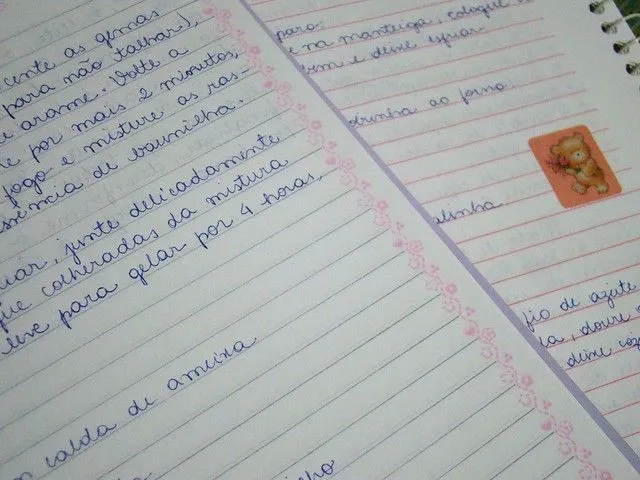 cente as gemas
para não talhar),
e arame. Volte a
por mais 2 minutos,
fogo e misture as ras-
sência de baunilha.
junte delicadamente
colheradas da mistura
leve para gelar por 4 horas.
calda de ameixa
para
e na manteiga, coloque
em e deixe esfriar.
ao forno.
fio de azeite
doure
deixe